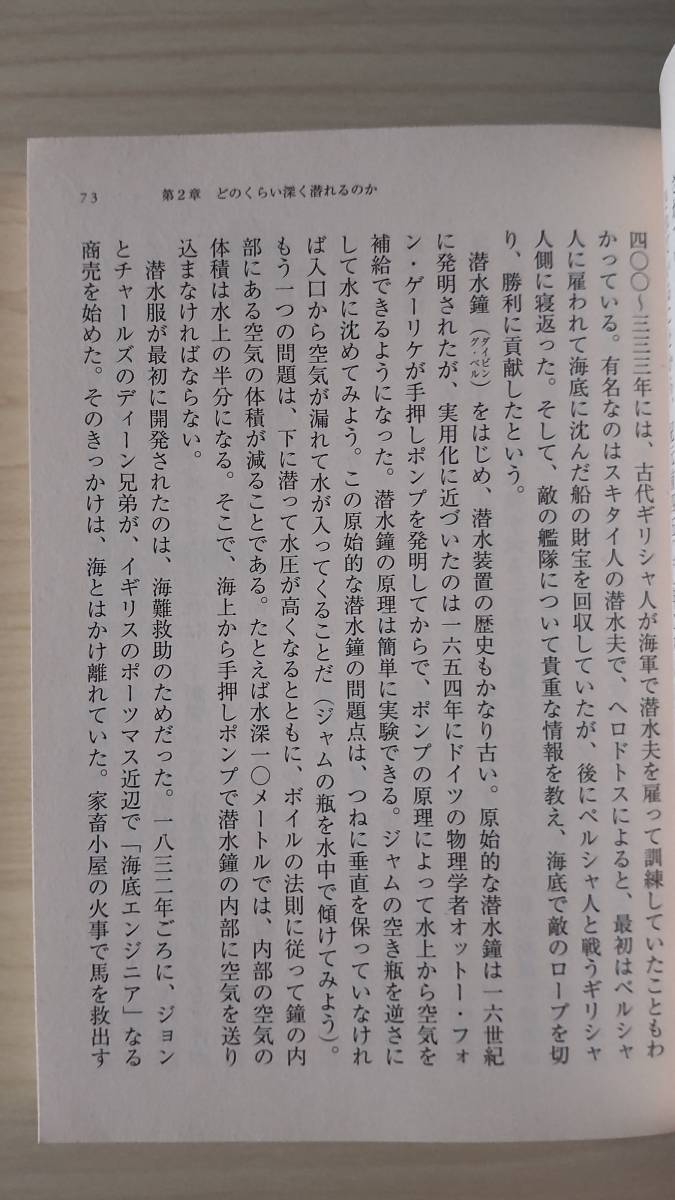 73
第2章 どのくらい深く潜れるのか
四〇〇〜三三三年には、古代ギリシャ人が海軍で潜水夫を雇って訓練していたこともわ
かっている。有名なのはスキタイ人の潜水夫で、ヘロドトスによると、最初はペルシャ
人に雇われて海底に沈んだ船の財宝を回収していたが、後にペルシャ人と戦うギリシャ
人側に寝返った。そして、敵の艦隊について貴重な情報を教え、海底で敵のロープを切
り、勝利に貢献したという。
潜水鐘（ダイビング・ベル）をはじめ、潜水装置の歴史もかなり古い。原始的な潜水鐘は一六世紀
に発明されたが、実用化に近づいたのは一六五四年にドイツの物理学者オットー・フォ
ン・ゲーリケが手押しポンプを発明してからで、ポンプの原理によって水上から空気を
補給できるようになった。潜水鐘の原理は簡単に実験できる。ジャムの空き瓶を逆さに
して水に沈めてみよう。この原始的な潜水鐘の問題点は、つねに垂直を保っていなけれ
ば入口から空気が漏れて水が入ってくることだ（ジャムの瓶を水中で傾けてみよう）。
もう一つの問題は、下に潜って水圧が高くなるとともに、ボイルの法則に従って鐘の内
部にある空気の体積が減ることである。たとえば水深一〇メートルでは、内部の空気の
体積は水上の半分になる。そこで、海上から手押しポンプで潜水鐘の内部に空気を送り
込まなければならない。
潜水服が最初に開発されたのは、海難救助のためだった。一八三二年ごろに、ジョン
とチャールズのディーン兄弟が、イギリスのポーツマス近辺で「海底エンジニア」なる
商売を始めた。そのきっかけは、海とはかけ離れていた。家畜小屋の火事で馬を救出す